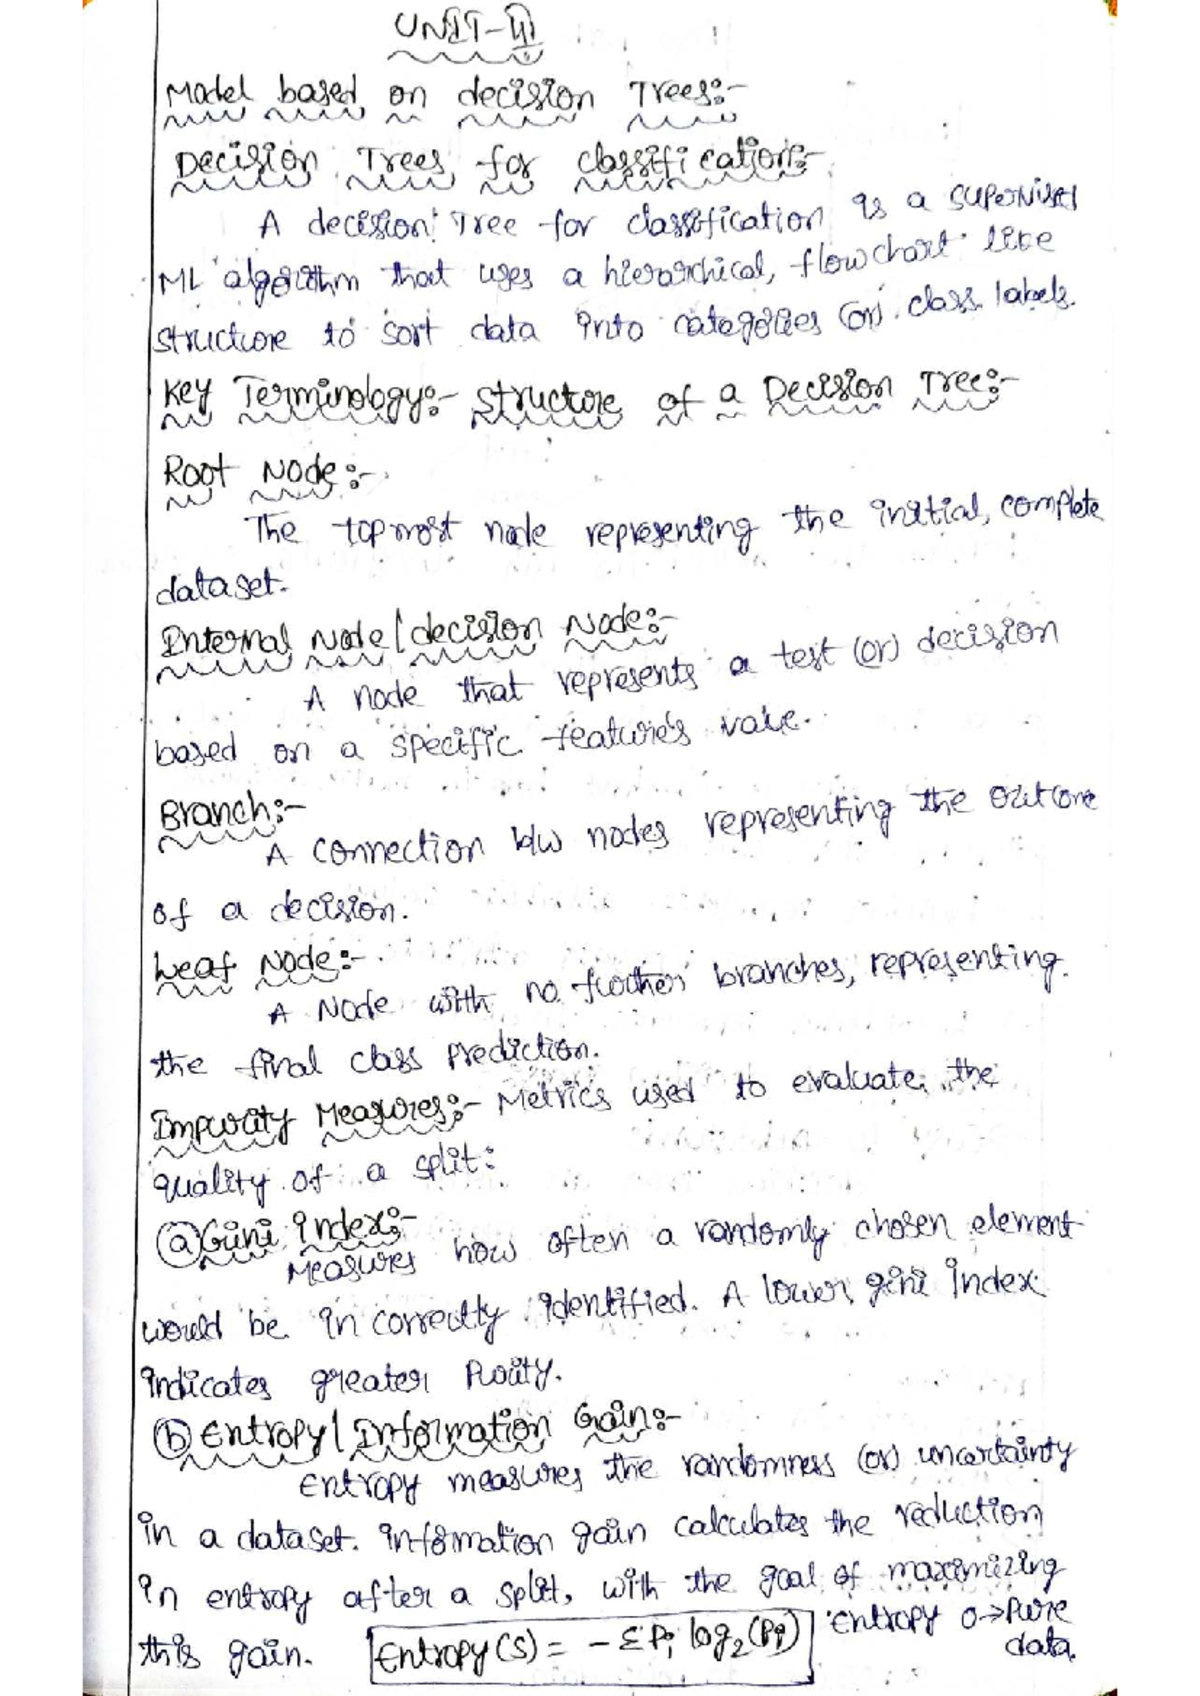 UNIT-III
Model based on decision Trees:-
Decision Trees for classification:-
A decision Tree for classification is a supervised
ML algorithm that uses a hierarchical, flowchart like
structure to sort data into categories (or) class labels.
Key Terminology:- Structure of a Decision Tree:-
Root Node:-
The topmost node representing the initial, complete
dataset.
Internal Node/decision Node:-
A node that represents a test (or) decision
based on a specific feature's value.
Branch:-
A connection b/w nodes representing the outcome
of a decision.
Leaf Node:-
A Node with no further branches, representing
the final class prediction.
Impurity Measures:- Metrics used to evaluate the
quality of a split:
(a) Gini index:-
Measures how often a randomly chosen element
would be incorrectly identified. A lower gini index
indicates greater Purity.
(b) Entropy/Information Gain:-
Entropy measures the randomness (or) uncertainty
in a dataset. information gain calculates the reduction
in entropy after a split, with the goal of maximizing
this gain. Entropy(S) = -Σ Pi log2(Pi) Entropy 0→Pure
data.